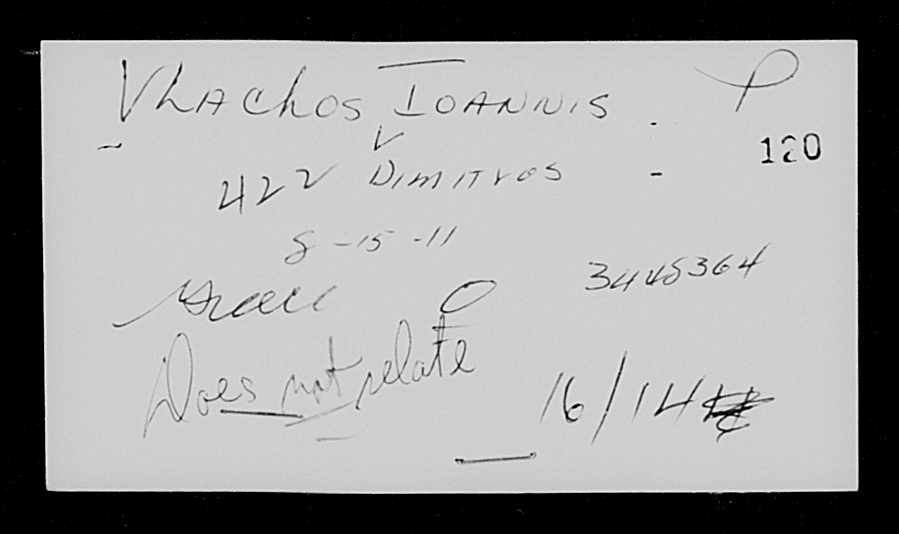 Vlachos Ioannis P
120
422 Dimitros
8-15-11
3448364
Does not relate
16/14